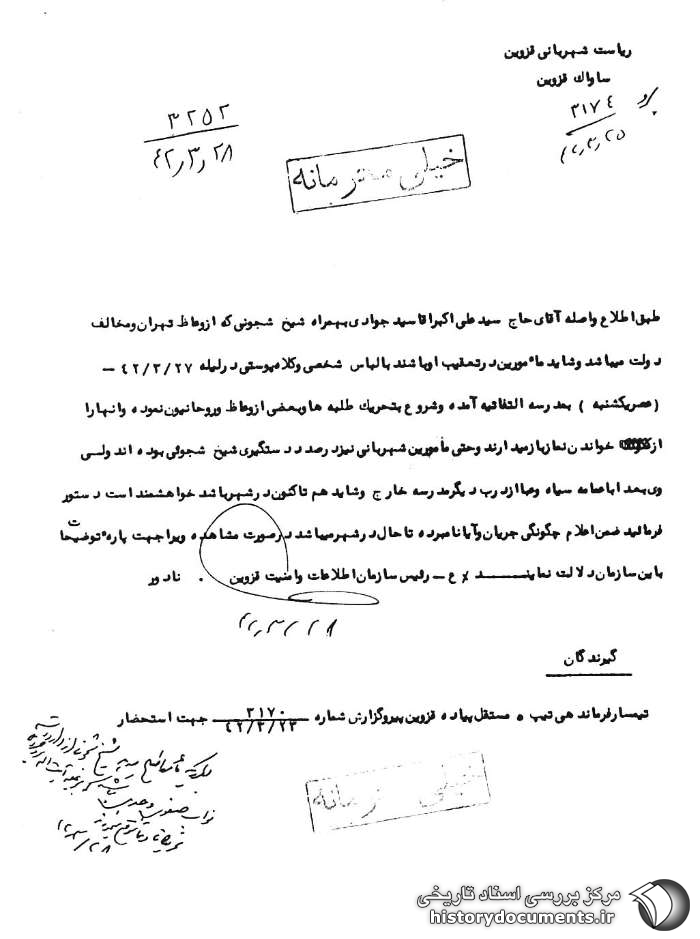 ریاست شهربانی قزوین
ساواک قزوین
۳۱۷۴
۴۲٫۳٫۲۵
۳۲۵۲
۴۲٫۳٫۲۸
خیلی محرمانه
طبق اطلاع واصله آقای حاج سید علی اکبر اقا سید جوادی بهمراه شیخ شجونی که از وعاظ تهران و مخالف
دولت میباشد و شاید مأمورین در تعقیب او باشند بالباس شخصی و کلاه پوستی در لیله ۴۲/۳/۲۷ –
( عصر یکشنبه ) بمدرسه التفاتیه آمده و شروع بتحریک طلبه ها و بعضی از وعاظ و روحانیون نموده و انها را
از خواندن نماز باز میدارند و حتی مأمورین شهربانی نیز در صدد دستگیری شیخ شجونی بوده اند ولی
وی بعد ا باعمامه سیاه و عبا از درب دیگر مدرسه خارج و شاید هم تاکنون در شهر باشد خواهشمند است دستور
فرمائید ضمن اعلام چگونگی جریان و آیا نامبرده تا حال در شهر میباشد در صورت مشاهده ویرا جهت پاره توضیحات
باین سازمان دلالت نمایند ع – رئیس سازمان اطلاعات وامنیت قزوین . نادور
۴۲٫۳٫۲۸
گیرندگان
تیمسار فرماندهی تیپ ه مستقل پیاده قزوین پیرو گزارش شماره ۳۱۷۰ / ۴۲/۳/۲۳ جهت استحضار
خیلی محرمانه
مرکز بررسی اسناد تاریخی
historydocuments.ir